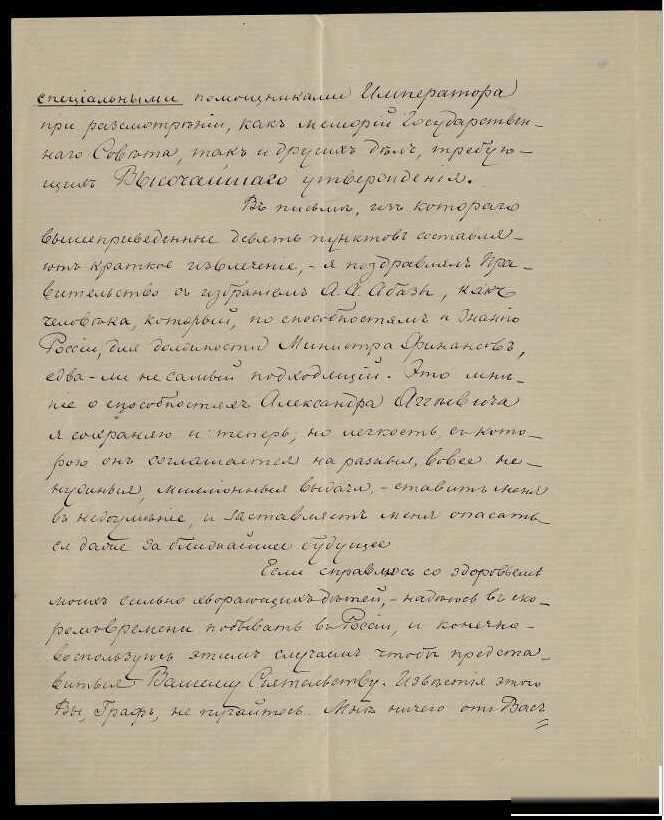 спеціальными помощниками Императора
при разсмотрѣніи, какъ меморій Государствен-
наго Совѣта, такъ и другихъ дѣлъ, требую-
щихъ Высочайшаго утвержденія.
Въ письмѣ, изъ котораго
вышеприведенные девять пунктовъ составля-
ютъ краткое извлеченіе, - я поздравлялъ Пра-
вительство съ избраніемъ А. А. Абазы, какъ
человѣка, который, по способностямъ и знанію
Россіи, для должности Министра Финансовъ,
едва-ли не самый подходящій. Это мнѣ-
ніе о способностяхъ Александра Аггѣевича
я сохраняю и теперь; но легкость, съ кото-
рою онъ соглашается на разныя, вовсе не-
нужныя, милліонныя выдачи, - ставитъ меня
въ недоумѣніе, и заставляетъ меня опасать-
ся даже за ближайшее будущее
Если справлюсь со здоровьемъ
моихъ сильно хворающихъ дѣтей, - надѣюсь въ ско-
ромъ времени побывать въ Россіи, и конечно
воспользуюсь этимъ случаемъ чтобы предста-
виться Вашему Сіятельству. Извѣстія этого
Вы, Графъ, не пугайтесь. Мнѣ ничего отъ Васъ